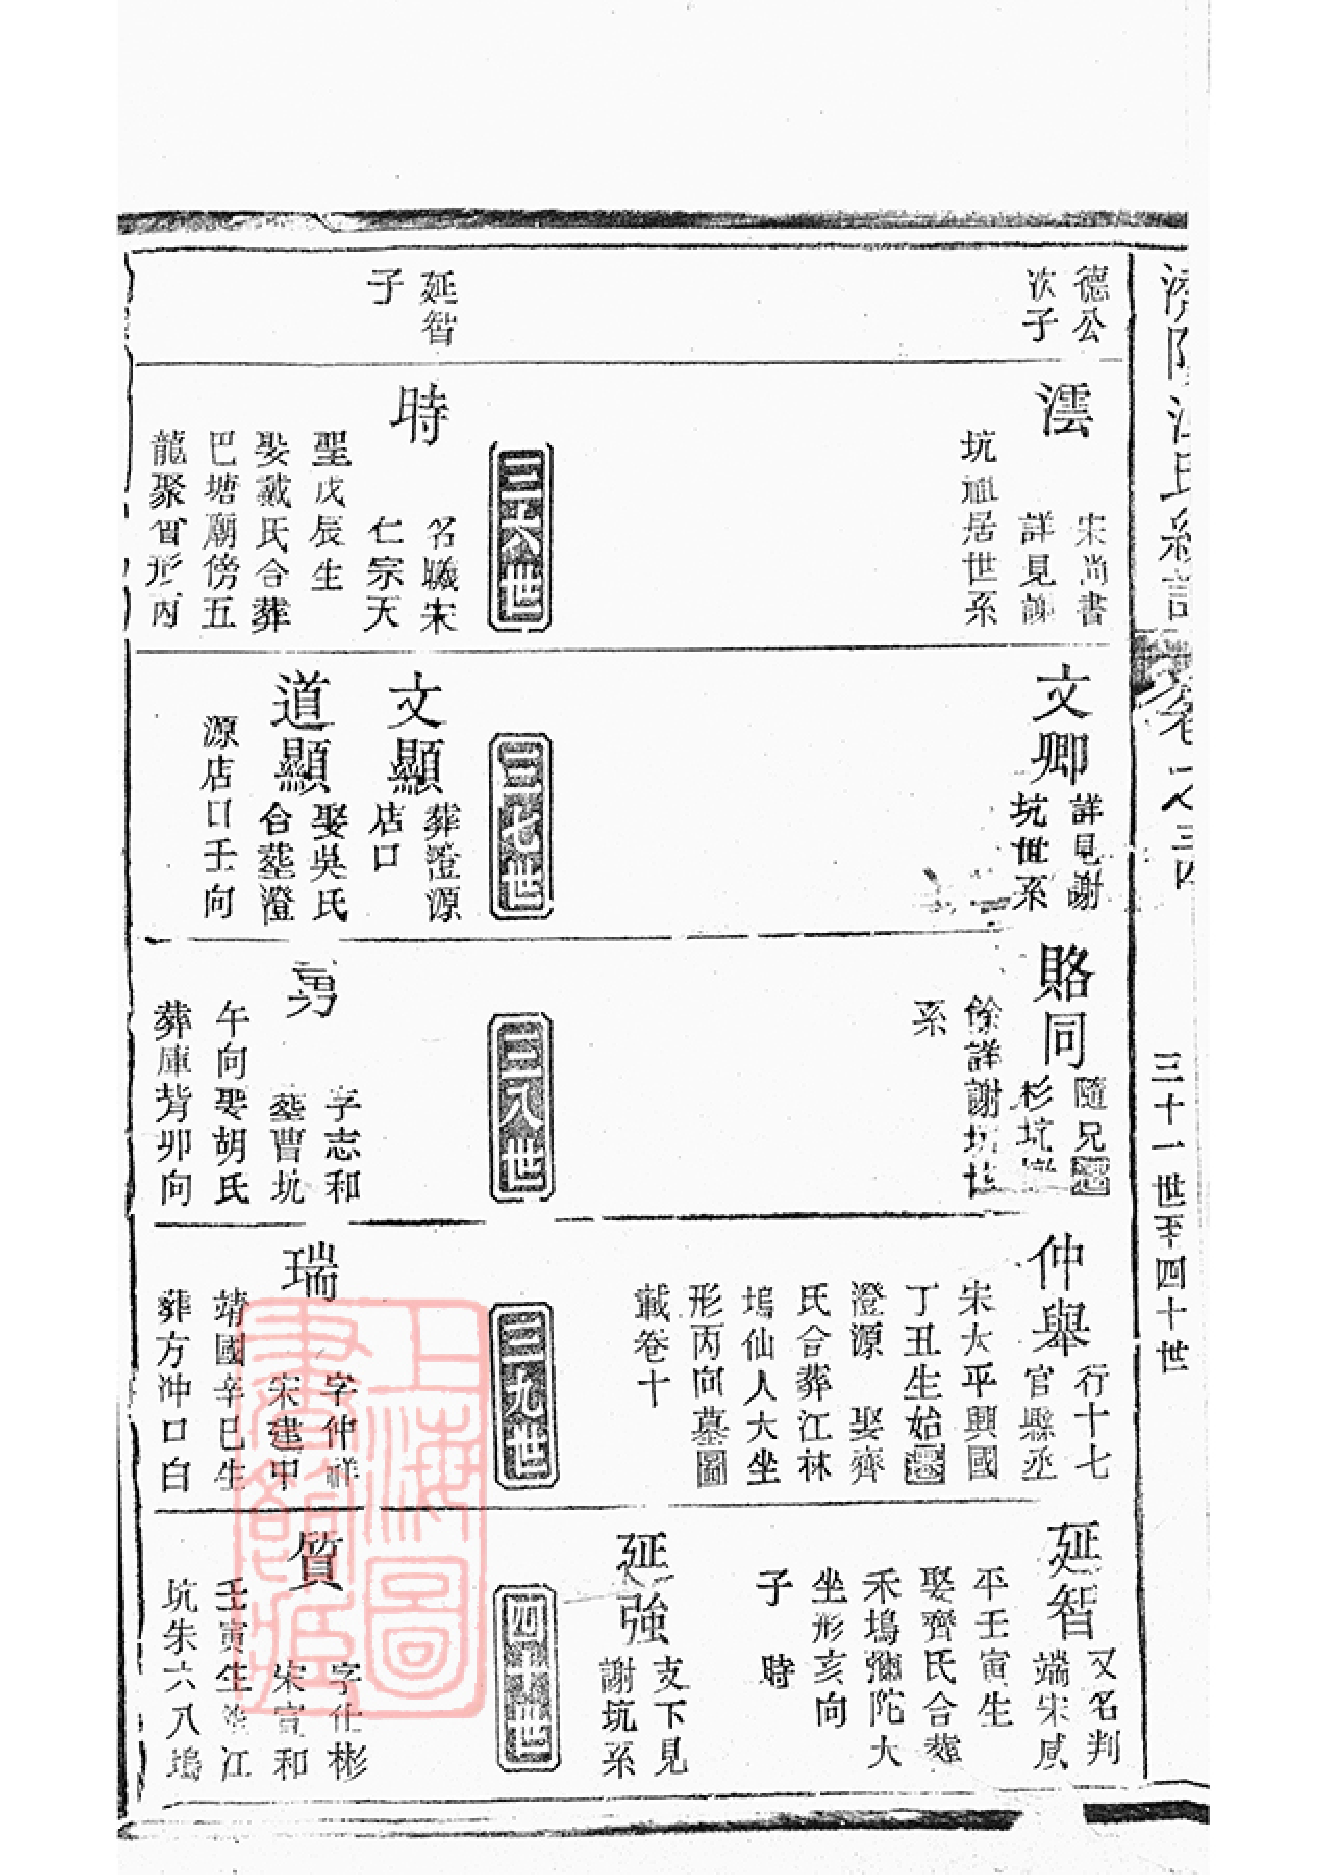 濟陽江氏統譜
卷一八三四
三十一世至四十世
德公
次子
澐
宋尚書
詳見謝
坑祖居世系
文卿
詳見謝
坑世系
賂同
隨兄遷
杉坑
餘詳謝坑世
系
仲舉
行十七
官縣丞
宋太平興國
丁丑生始遷
澄源娶齊
氏合葬江林
塢仙人大坐
形丙向墓圖
載卷十
延智
又名判
端宋咸
平壬寅生
娶齊氏合葬
禾塢彌陀大
坐形亥向
子時
延強
支下見
謝坑系
三六世
三七世
三八世
三九世
四十世
延智
子
時
名曦宋
仁宗天
聖戊辰生
娶戴氏合葬
巴塘廟傍五
龍聚會形丙
文顯
葬澄源
店口
道顯
娶吳氏
合葬澄
源店口壬向
男
字志和
葬曹坑
午向娶胡氏
葬庫背卯向
瑞
字仲祥
宋建中
靖國辛巳生
葬方冲口白
質
字仕彬
宋宣和
壬寅生葬江
坑朱六八塢
上海圖
書館藏